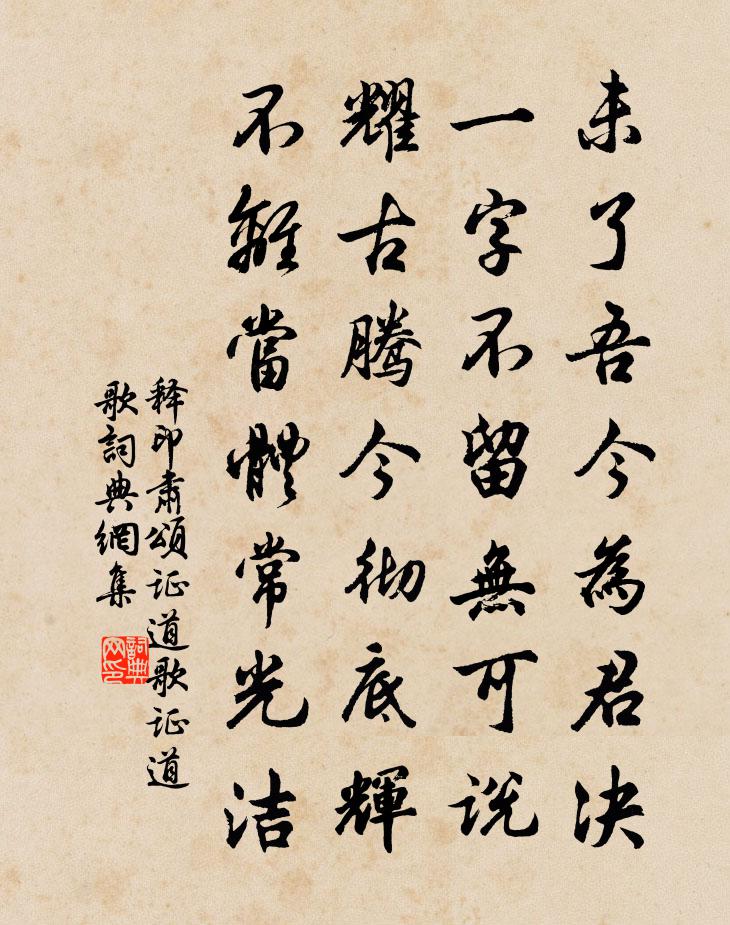 未了吾今為君決
一字不留無可說
耀古騰今彻底輝
不離當體常光洁
释印肃頌证道歌证道
歌詞典網集
詞典
网印